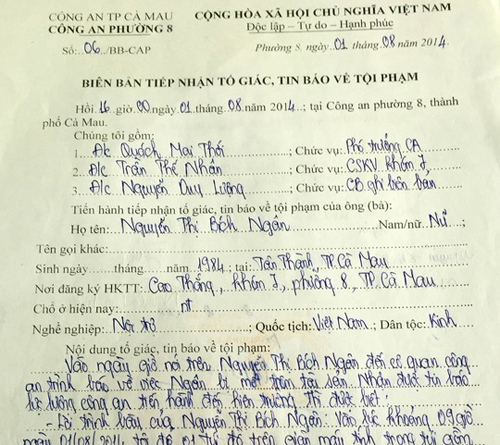 CÔNG AN TP CÀ MAU
CỘNG HÒA XÃ HỘI CHỦ NGHĨA VIỆT NAM
CÔNG AN PHƯỜNG 8
Độc lập – Tự do – Hạnh phúc
Số: 06 ../BB-CAP
Phường 8, ngày 01 tháng 08 năm 2014.
BIÊN BẢN TIẾP NHẬN TỐ GIÁC, TIN BÁO VỀ TỘI PHẠM
Hồi 16 giờ 00 ngày 01 tháng 08 năm 2014; tại Công an phường 8, thành
phố Cà Mau.
Chúng tôi gồm:
1. Đ/c Quách Mai Thới ; Chức vụ: Phó trưởng CA
2. Đ/c Trần Thế Nhân ; Chức vụ: CSKV khóm 7,
3. Đ/c Nguyễn Duy Lương ; Chức vụ: CB ghi biên bản
Tiến hành tiếp nhận tố giác, tin báo về tội phạm của ông (bà):
Họ tên: Nguyễn Thị Bích Ngân Nam/nữ: Nữ ;
Tên gọi khác:
Sinh ngày ...... tháng ...... năm 1984; tại: Tân Thành, TP Cà Mau
Nơi đăng ký HKTT: Cao Thắng, khóm 7, phường 8, TP Cà Mau
Chỗ ở hiện nay: nt
Nghề nghiệp: Nội trợ ; Quốc tịch: Việt Nam ; Dân tộc: Kinh
Nội dung tố giác, tin báo về tội phạm:
Vào ngày giờ nói trên Nguyễn Thị Bích Ngân đến cơ quan công
an trình báo về việc Ngân bị mất trộm tài sản. Nhận được tin báo
lực lượng công an tiến hành đến hiện trường thì được biết:
- Lời trình bày của Nguyễn Thị Bích Ngân: Vào lúc khoảng 09 giờ
ngày 01/08/2014